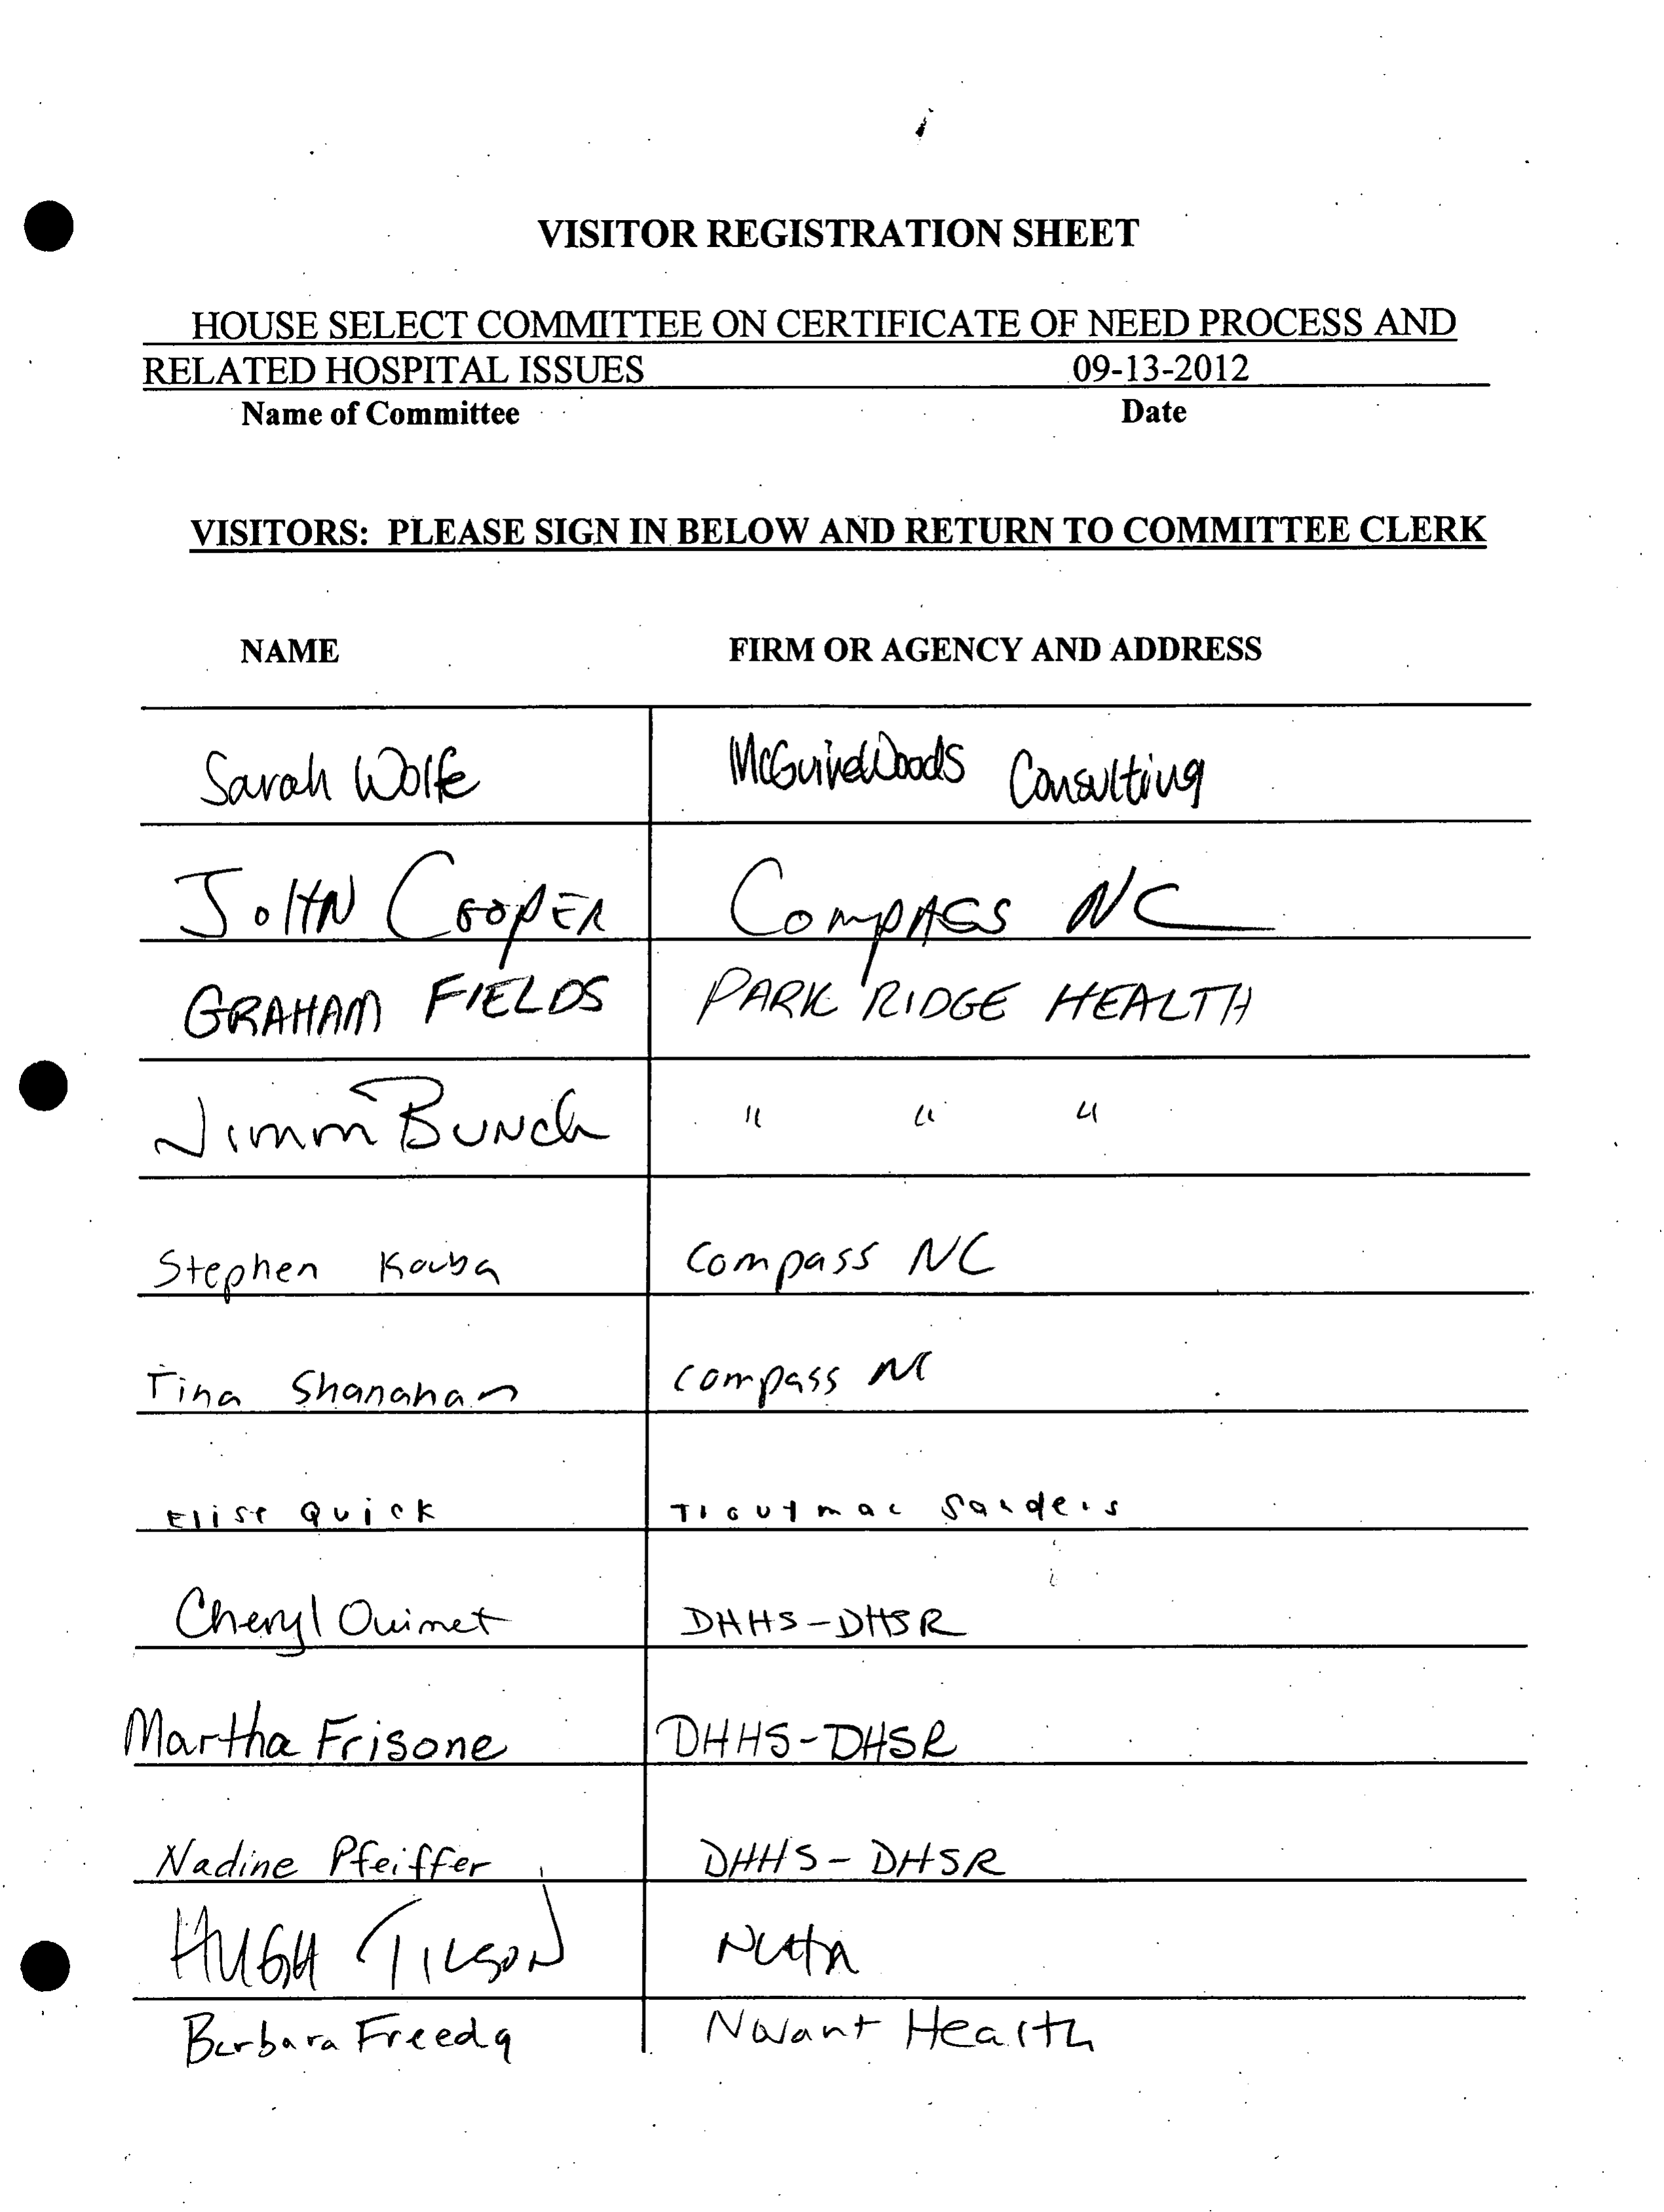 VISITOR REGISTRATION SHEET
HOUSE SELECT COMMITTEE ON CERTIFICATE OF NEED PROCESS AND
RELATED HOSPITAL ISSUES 09-13-2012
Name of Committee Date
VISITORS: PLEASE SIGN IN BELOW AND RETURN TO COMMITTEE CLERK
NAME FIRM OR AGENCY AND ADDRESS
Sarah Wolfe McGuireWoods Consulting
JOHN COOPER COMPASS NC
GRAHAM FIELDS PARK RIDGE HEALTH
Jimm Bunch " " "
Stephen Kouba Compass NC
Tina Shanahan compass NC
Elise Quick Troutman Sanders
Cheryl Ouimet DHHS-DHSR
Martha Frisone DHHS-DHSR
Nadine Pfeiffer DHHS-DHSR
HUGH TILSON NCHA
Barbara Freedy Novant Health